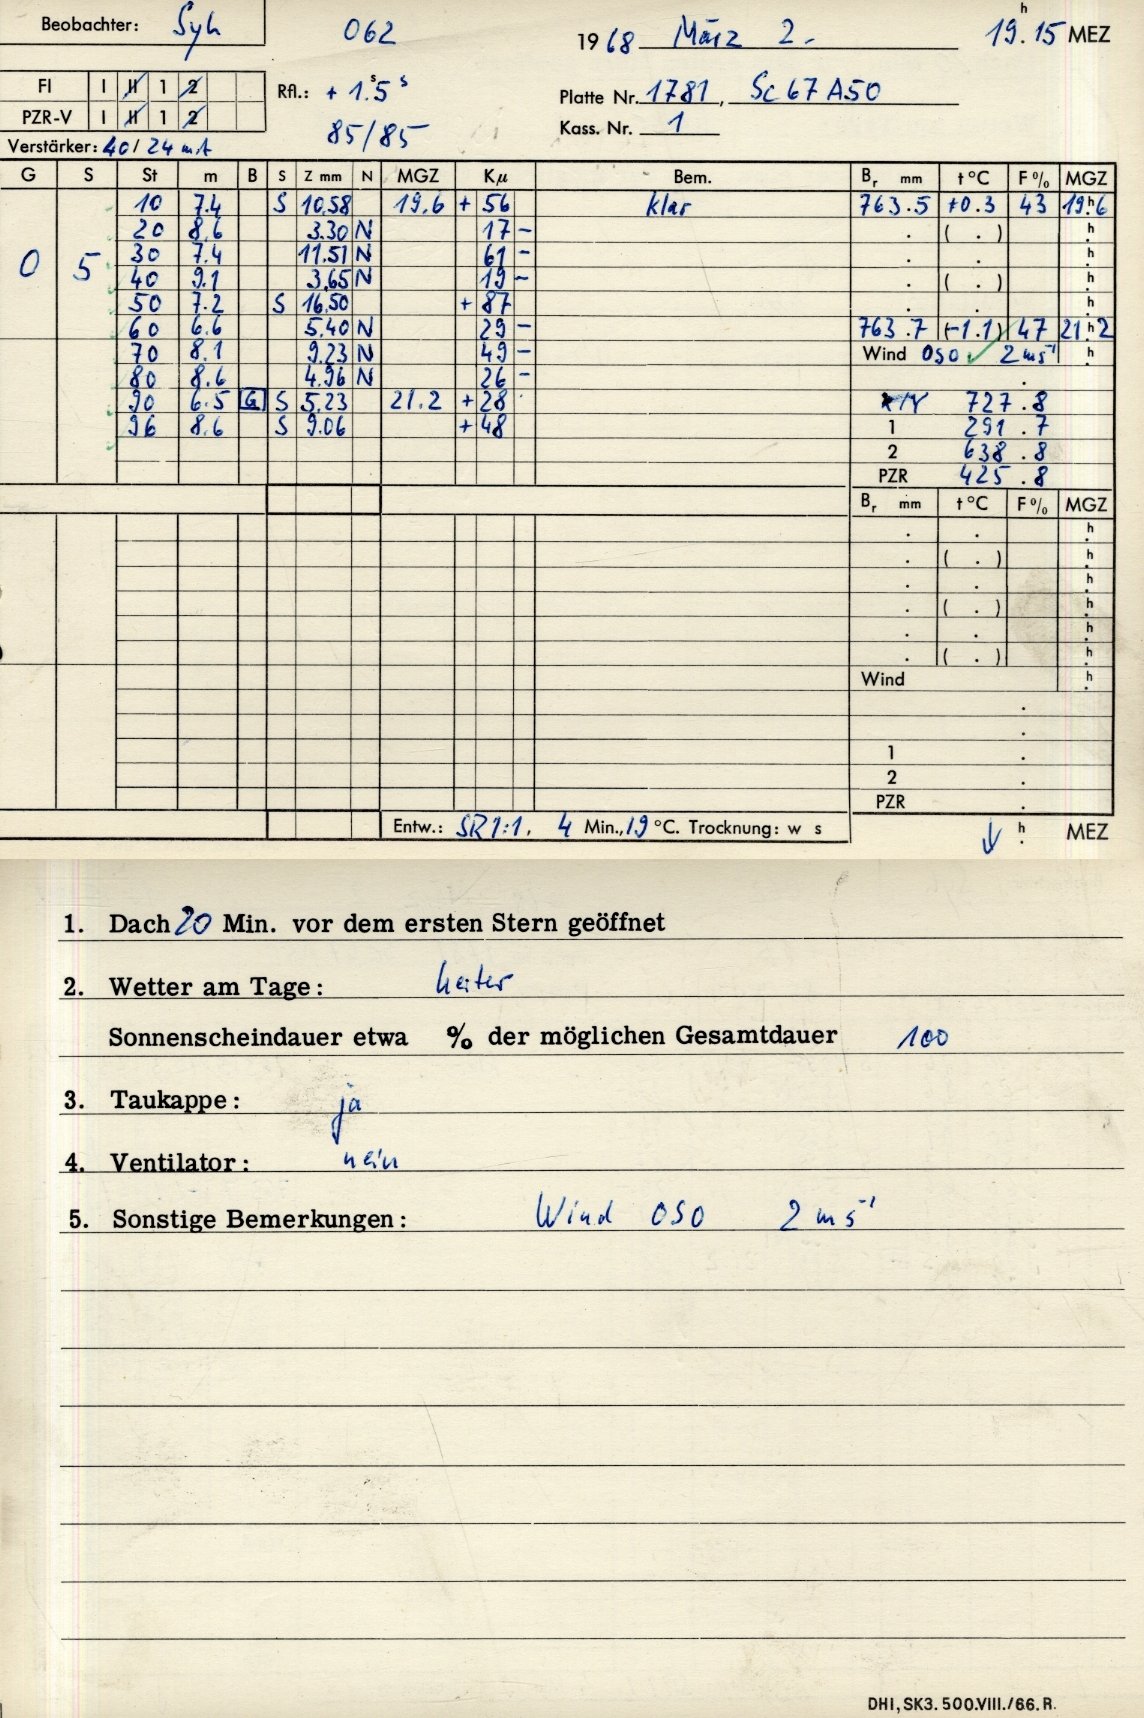 Beobachter: Syh 062 1968 März 2. 19h.15 MEZ
FI I II 1 2 Rfl.: + 1.s5 s Platte Nr. 1781, Sc 67 A50
PZR-V I II 1 2 85/85 Kass. Nr. 1
Verstärker: 40/24 mA
G S St m B S Z mm N MGZ Kμ Bem. Br mm t °C F % MGZ
10 7.4 S 10.58 19.6 + 56 klar 763.5 +0.3 43 19.h6
20 8.6 3.30 N 17 - . ( . ) h.
0 5 30 7.4 11.51 N 61 - . . h.
40 9.1 3.65 N 19 - . ( . ) h.
50 7.2 S 16.50 + 87 . . h.
60 6.6 5.40 N 29 - 763.7 (-1.1) 47 21.h2
70 8.1 9.23 N 49 - Wind OSO ✓ 2 ms-1 h.
80 8.6 4.96 N 26 - .
90 6.5 G S 5.23 21.2 + 28 727.8
96 8.6 S 9.06 + 48 1 291.7
2 638.8
PZR 425.8
Br mm t °C F % MGZ
. . h.
. ( . ) h.
. . h.
. ( . ) h.
. . h.
. ( . ) h.
Wind h.
.
.
1 .
2 .
PZR .
Entw.: SR 1:1, 4 Min., 19 °C. Trocknung: w s ↓ h. MEZ
1. Dach 20 Min. vor dem ersten Stern geöffnet
2. Wetter am Tage: heiter
Sonnenscheindauer etwa % der möglichen Gesamtdauer 100
3. Taukappe: ja
4. Ventilator: nein
5. Sonstige Bemerkungen: Wind OSO 2 ms-1
DHI, SK3. 500.VIII./66. R.